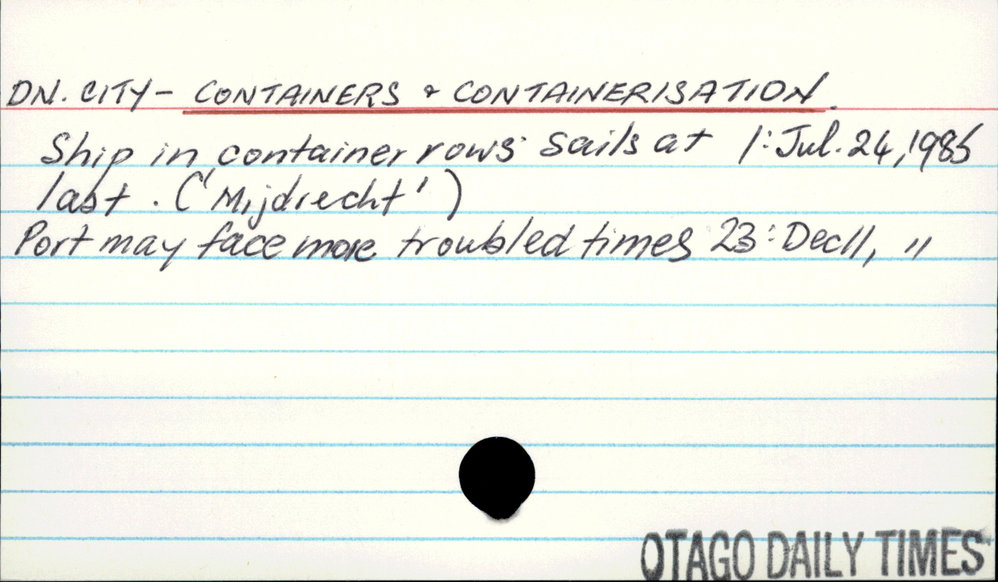 DN. CITY - CONTAINERS & CONTAINERISATION.
Ship in container rows sails at 1: Jul. 24, 1985
last. ('Mijdrecht')
Port may face more troubled times 23: Dec 11, "
OTAGO DAILY TIMES